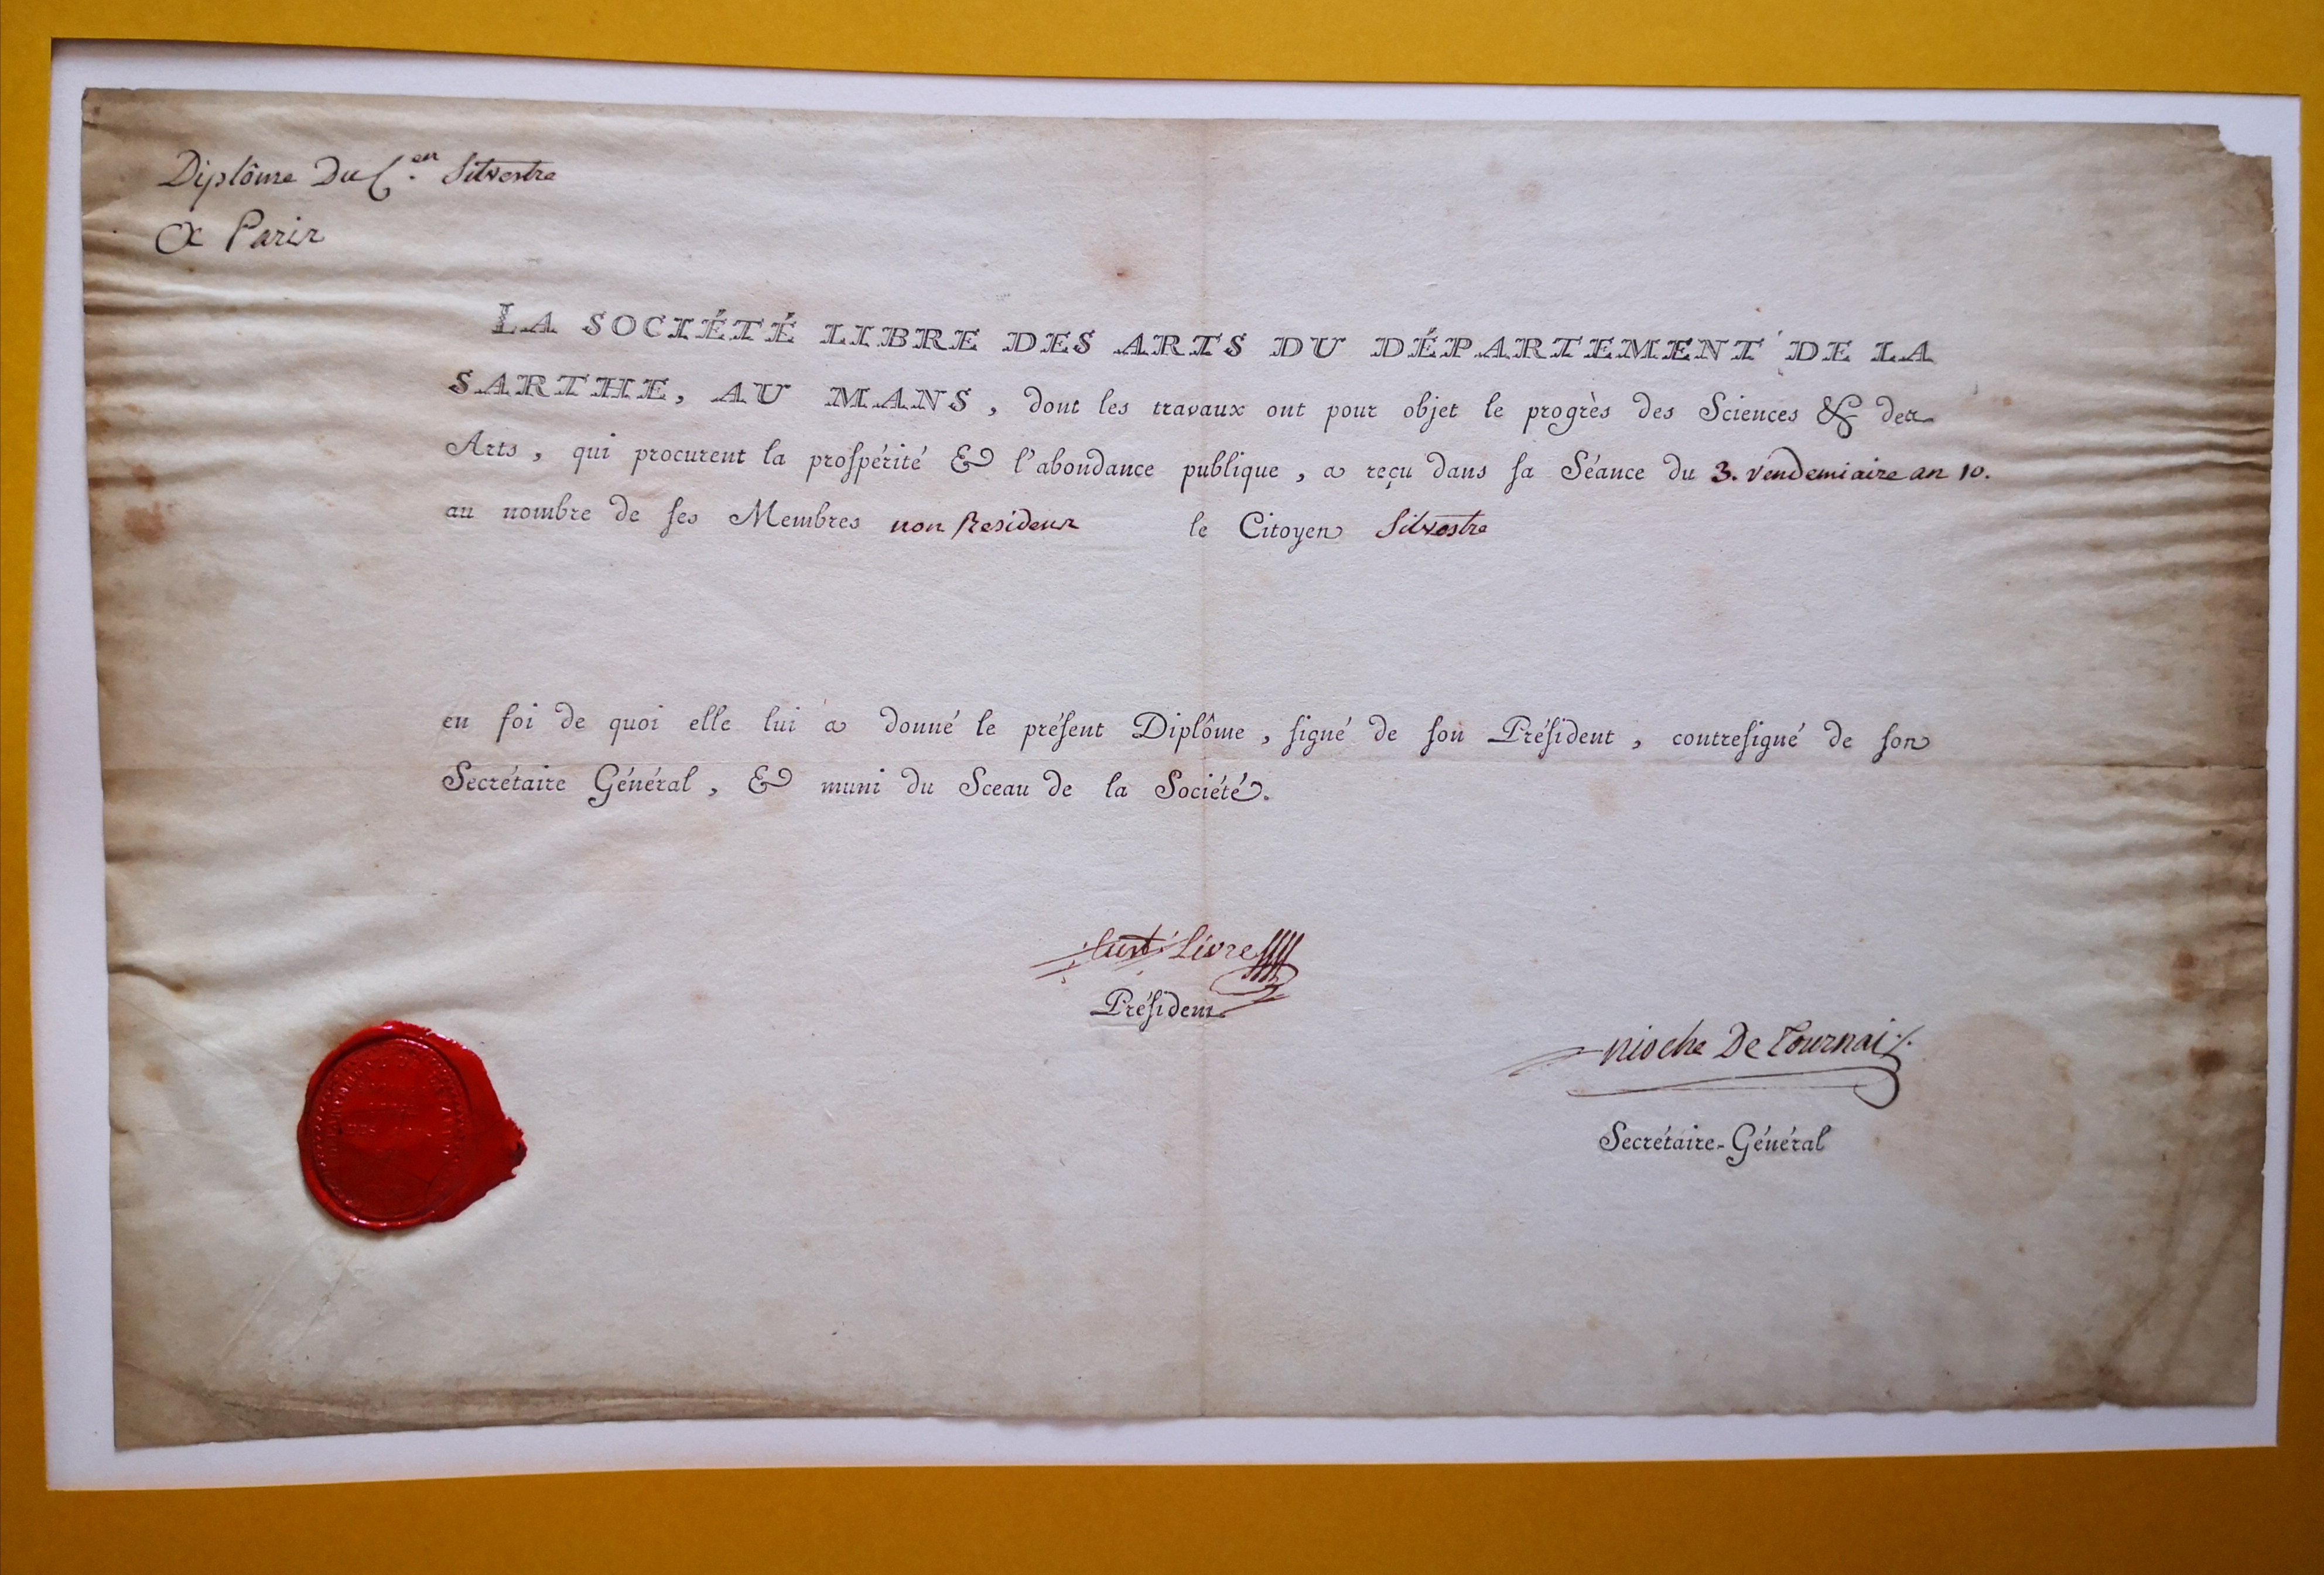 Diplôme Du C.en Silvestre
A Paris
LA SOCIÉTÉ LIBRE DES ARTS DU DÉPARTEMENT DE LA
SARTHE, AU MANS, dont les travaux ont pour objet le progrès des Sciences & des
Arts, qui procurent la prospérité & l'abondance publique, a reçu dans sa Séance du 3. Vendemiaire an 10.
au nombre de ses Membres non Residens le Citoyen Silvestre
en foi de quoi elle lui a donné le présent Diplôme, signé de son Président, contresigné de son
Secrétaire Général, & muni du Sceau de la Société.
Livré
Président
Nioche De Tournai
Secrétaire-Général